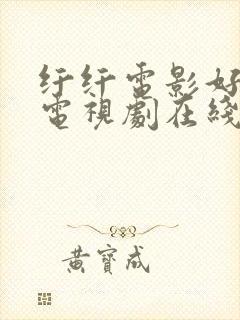 纤纤电影好
電視劇在綫
黃寶成